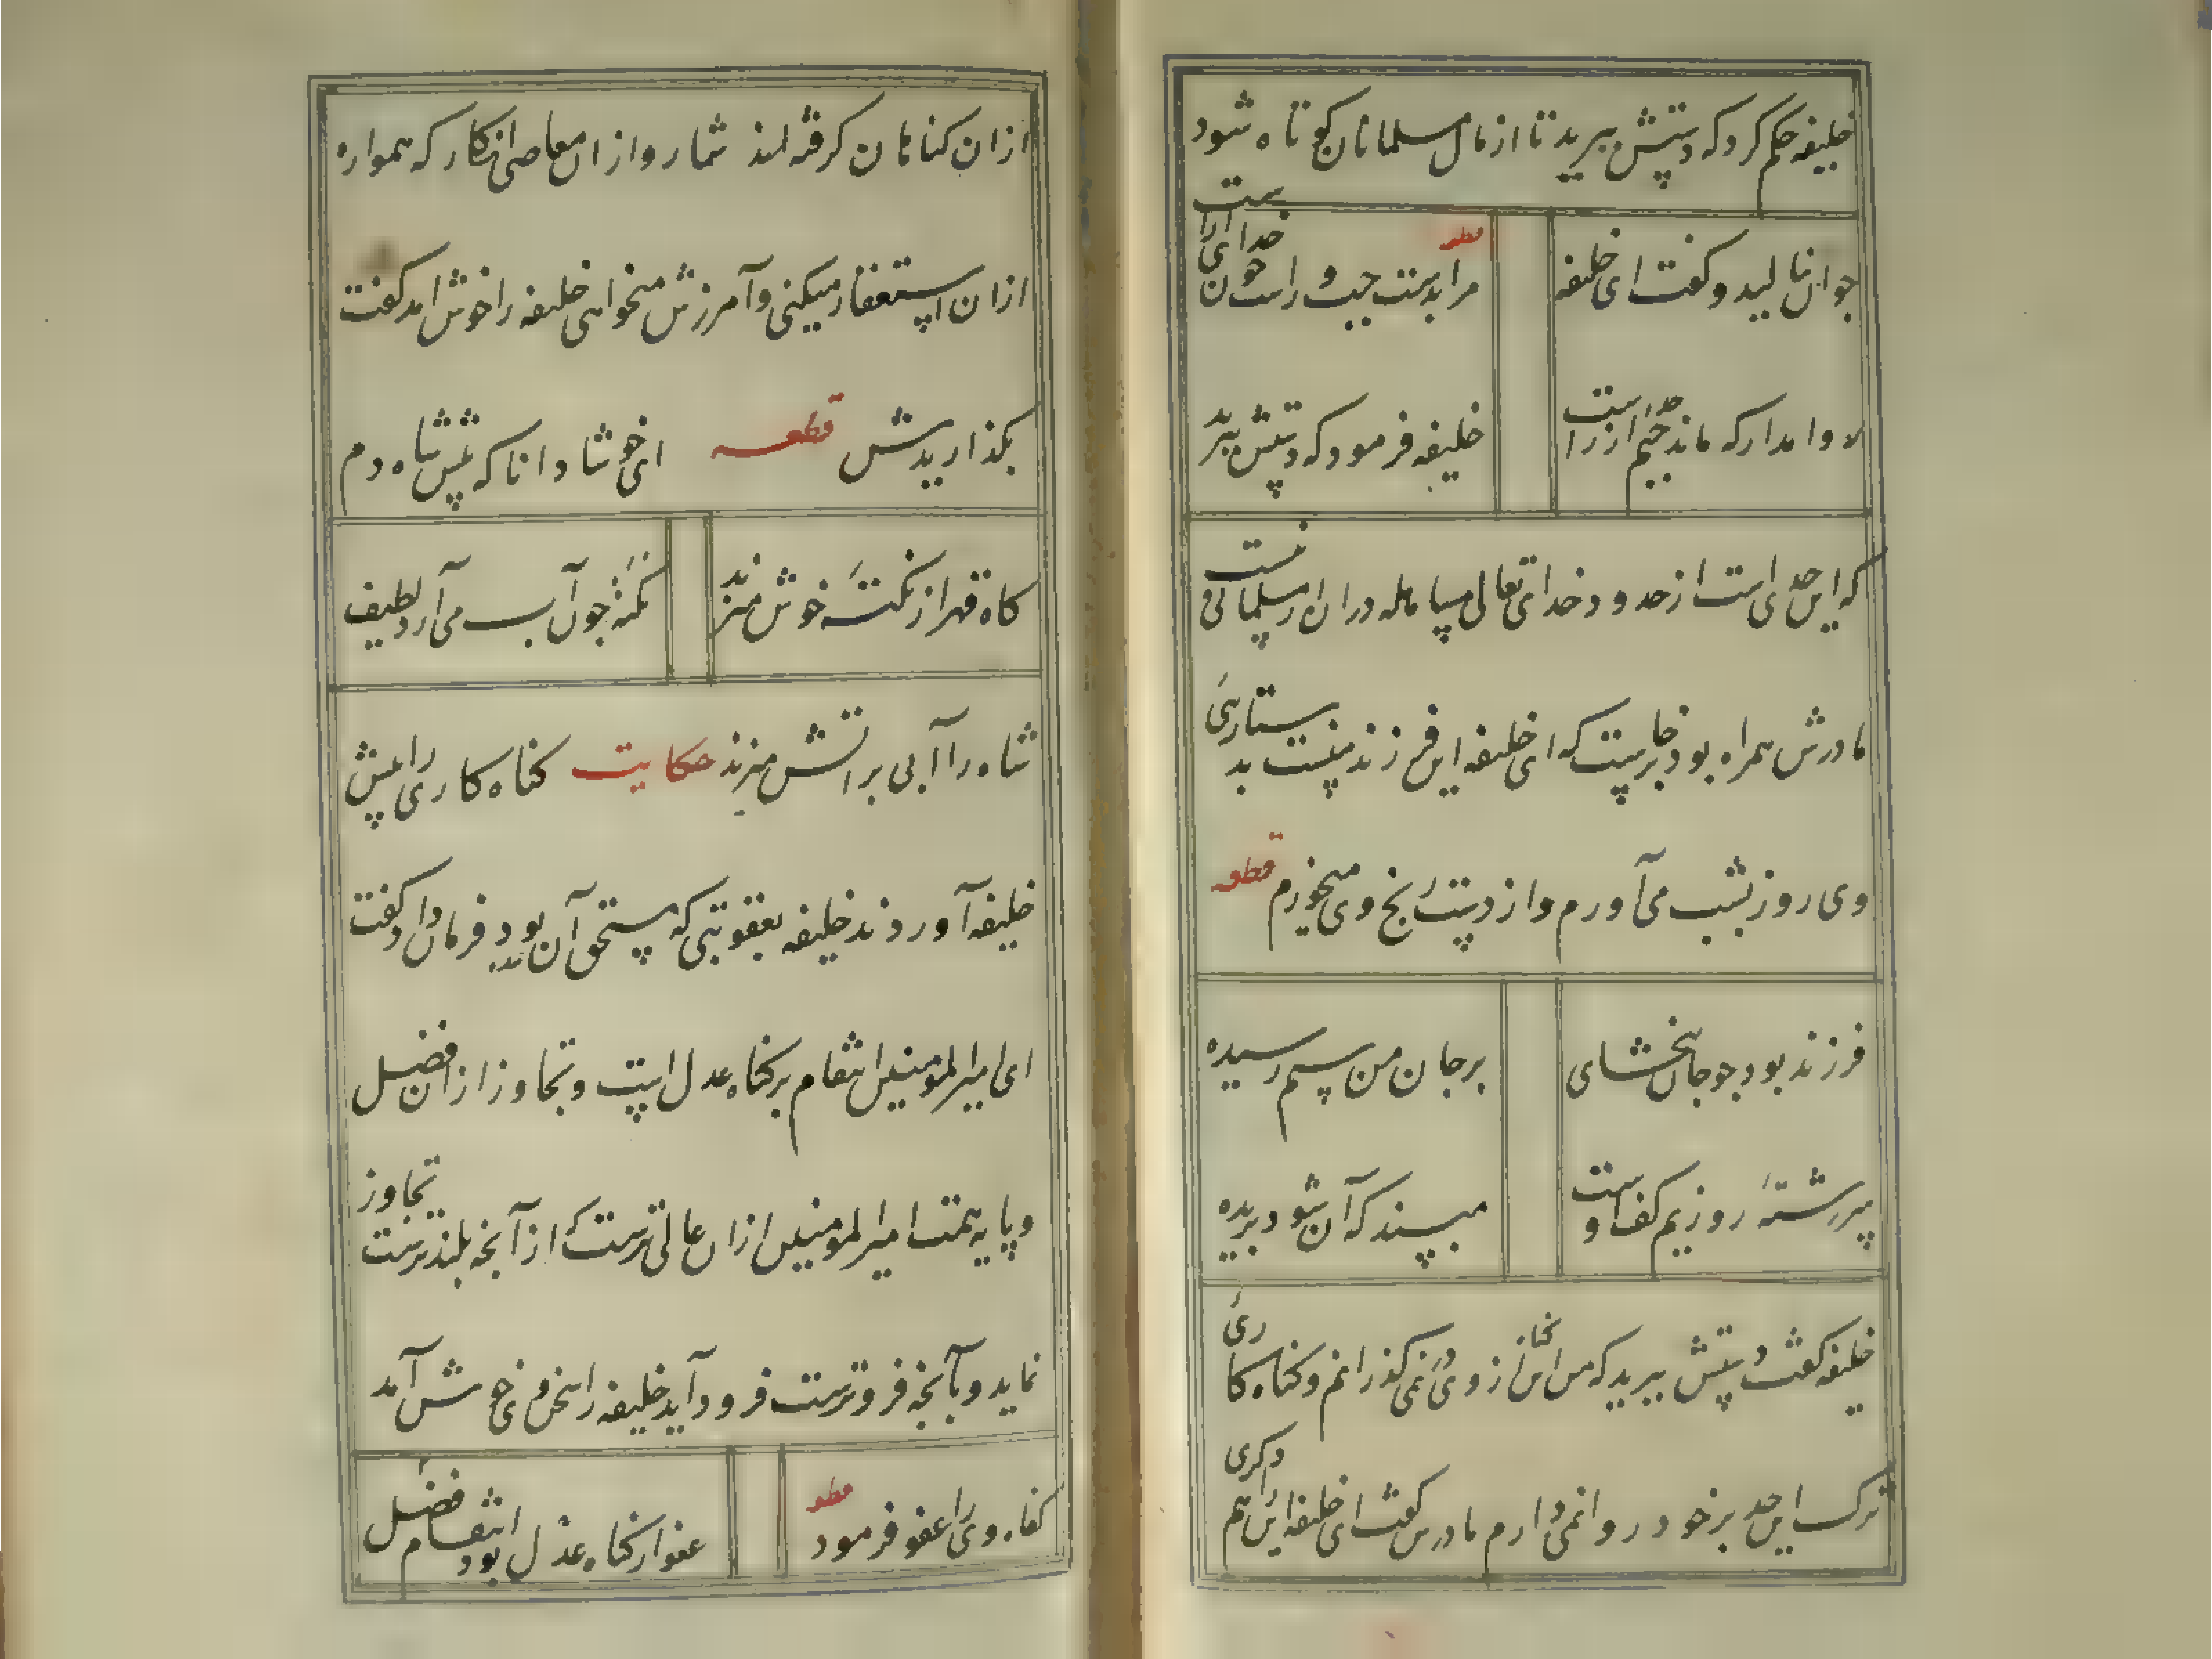 خلیفه حکم کرد که دستش ببرید تا از مال مسلمانان کوتاه شود
جوان نالید و کفت ای خلیفه
قطعه
مرا بدست چپ و راست چون خدای آراست
روا مدار که ماند چپم ز راست جدا
خلیفه فرمود که دستش ببرید
که این حدی است از حدود خدای تعالی مسامله در ان از مسلمانی نیست
مادرش همراه بود برخاست که ای خلیفه این فرزند منست بدستیاری
وی روز بشب می آورم و از دسترنج وی میخورم قطعه
فرزند بود چو جان بخشای
بر جان من ستم رسیده
سررشته روزیم کف اوست
مپسند که آن شود بریده
خلیفه کفت دستش ببرید که من این کناه از وی در نمی کذرانم و کناه کاری
ترک این حد بر خود روا نمی دارم مادرش کفت ای خلیفه این هم دکری
ازان کناهان کرفته اند شمار و ازان معاصی انکار که همواره
ازان استغفار میکنی و آمرزش میخواهی خلیفه را خوش امد کفت
بکذاریدش قطعه ای خوشا دانا که پیش شاه دم
کاه قهر از نکته خوش میزند
نکته چون آب می آرد لطیف
شاه را آبی بر اتش میزند حکایت کناه کاری را پیش
خلیفه آوردند خلیفه بعقوبتی که مستحق آن بود فرمان داد کفت
ای امیر المومنین انتقام بر کناه عدل است و تجاوز از ان فضل
و پایه همت امیر المومنین ازان عالی ترست که از آنچه بلندترست تجاوز
نماید و بآنچه فروترست فرود آید خلیفه را سخن وی خوش آمد
کناه وی را عفو فرمود
قطعه
عفو از کناه عدل بود انتقام فضل